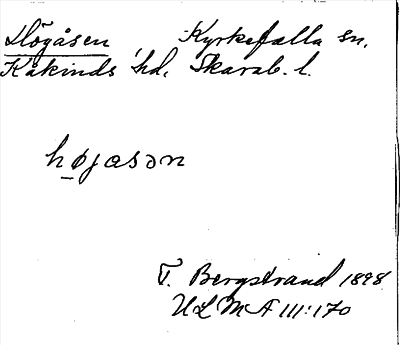 Högåsen Kyrkefalla sn.
Kåkinds hd. Skarab. l.
højasən
T. Bergstrand 1898
ULMA 111:170